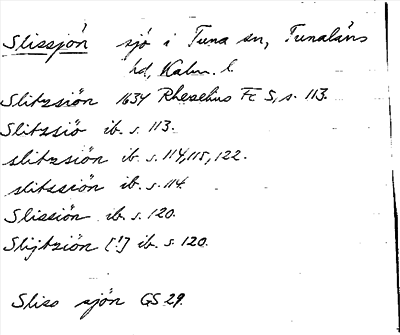 Slissjön sjö i Tuna sn, Tunaläns
hd, Kalm. l.
Slitzsiön 1634 Rhezelius Fc 5, s. 113.
Slitssiö ib. s. 113.
slitzsiön ib. s. 114, 115, 122.
slitssiön ib. s. 114.
Slissiön ib. s. 120.
Slijtziön [!] ib. s. 120.
Sliss sjön GS 29.